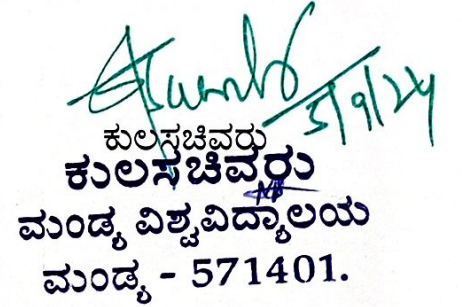 5/9/24
ಕುಲಸಚಿವರು
ಕುಲಸಚಿವರು
ಮಂಡ್ಯ ವಿಶ್ವವಿದ್ಯಾಲಯ
ಮಂಡ್ಯ - 571401.